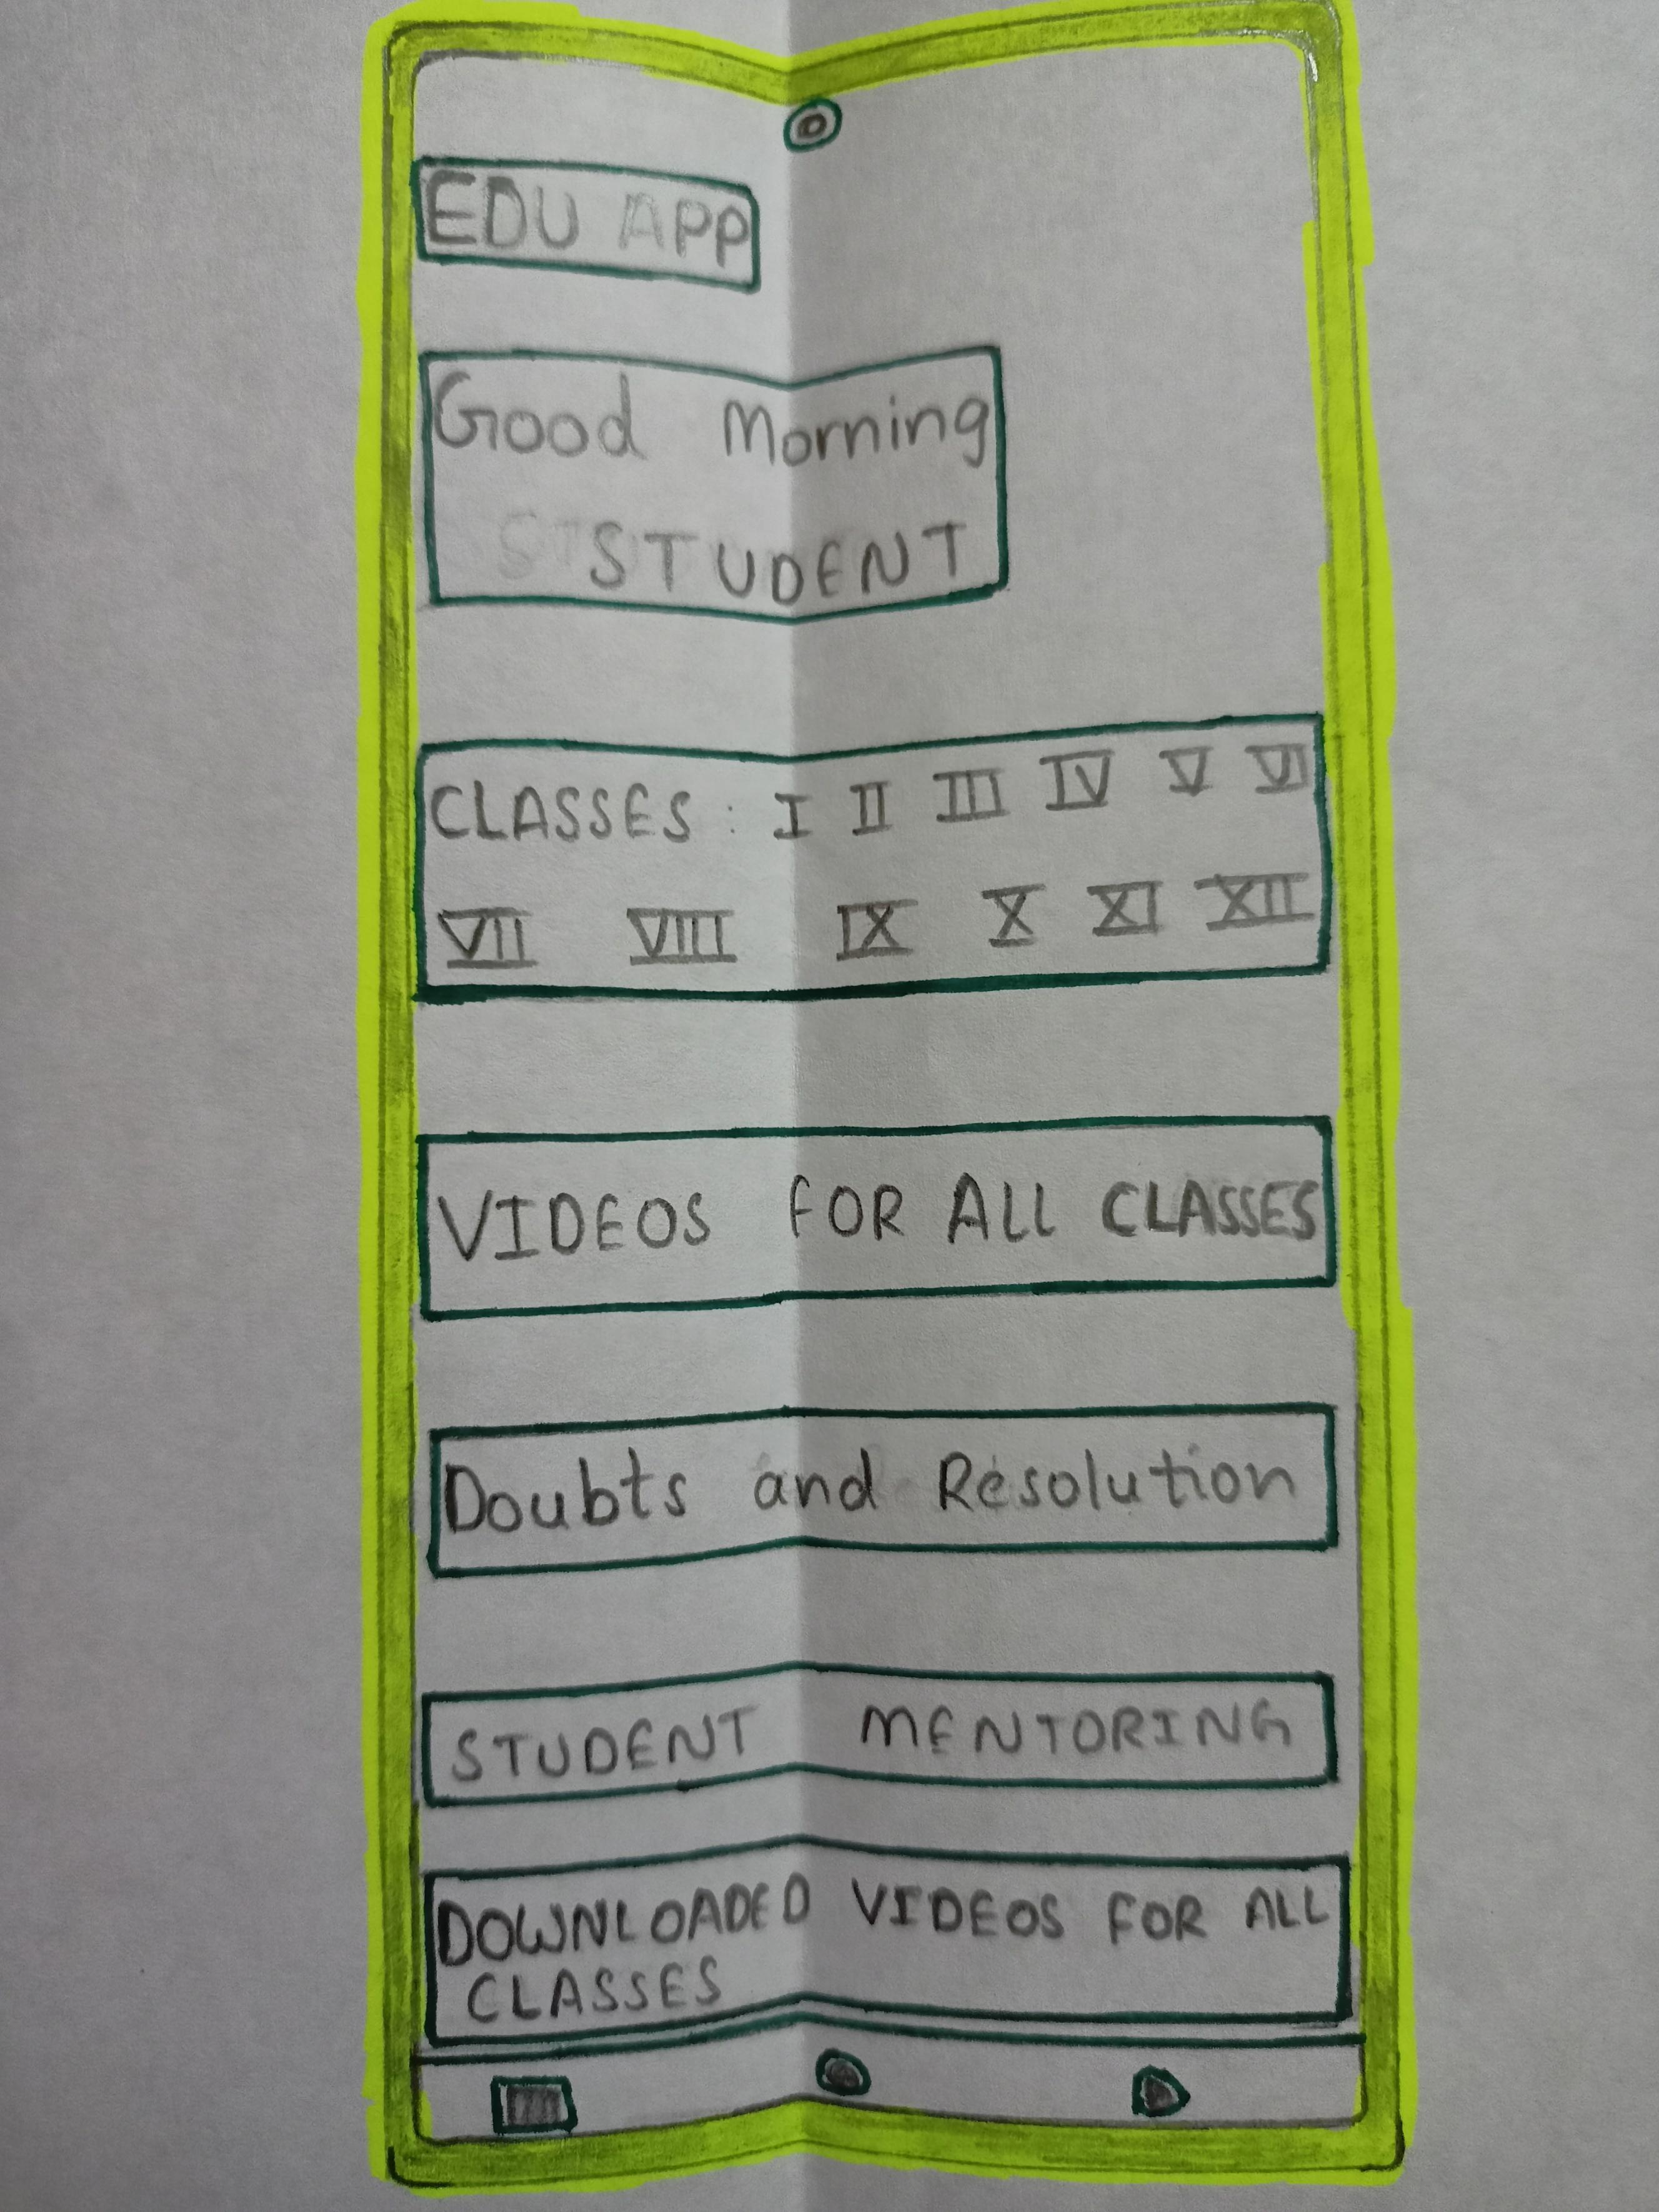 EDU APP
Good Morning
STUDENT
CLASSES : I II III IV V VI
VII VIII IX X XI XII
VIDEOS FOR ALL CLASSES
Doubts and Resolution
STUDENT MENTORING
DOWNLOADED VIDEOS FOR ALL
CLASSES